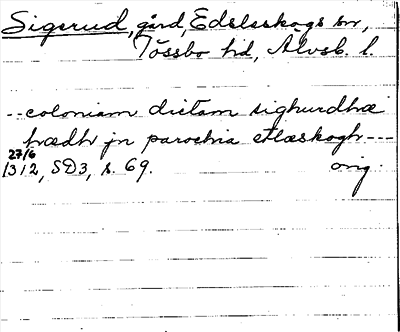 Sigerud, gård, Edsleskogs sn,
Tössbo hd, Älvsb. l.
-- coloniam dictam sighurdhæ
hrædh jn parochia etlæskogh ---
27/6
1312, SD3, s. 69. orig.